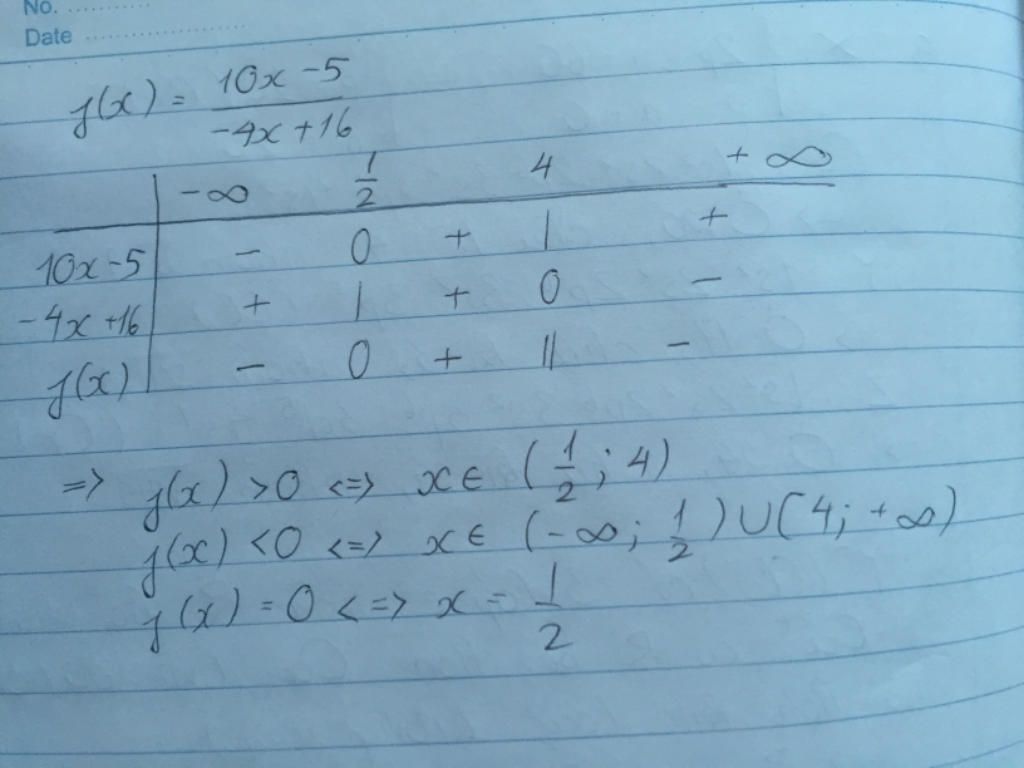 No. ............
Date ........................
f(x) = \frac{10x - 5}{-4x + 16}
-∞ \frac{1}{2} 4 +∞
10x - 5 - 0 + | +
-4x + 16 + | + 0 -
f(x) - 0 + || -
=> f(x) > 0 <=> x ∈ (\frac{1}{2}; 4)
f(x) < 0 <=> x ∈ (-∞; \frac{1}{2}) ∪ (4; +∞)
f(x) = 0 <=> x = \frac{1}{2}